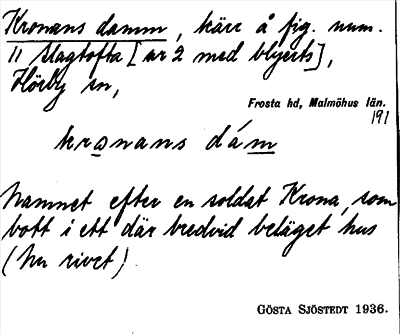 Kronans damm, kärr å fig. num.
11 Slagtofta [ur 2 med blyerts],
Hörby sn,
Frosta hd, Malmöhus län.
191
kronans dám
Namnet efter en soldat Krona, som
bott i ett där bredvid beläget hus
(nu rivet).
GÖSTA SJÖSTEDT 1936.